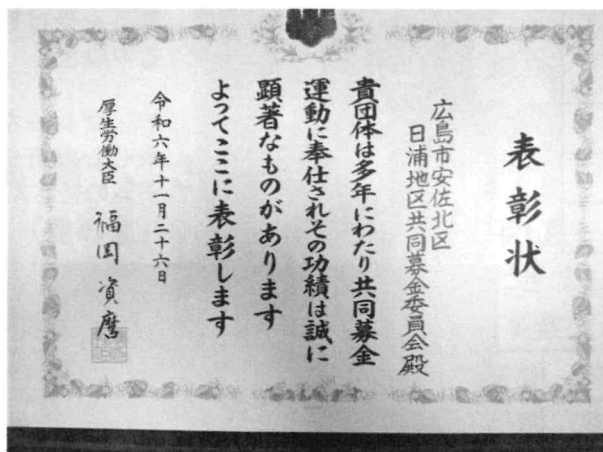 表彰状
広島市安佐北区
日浦地区共同募金委員会殿
貴団体は多年にわたり共同募金
運動に奉仕されその功績は誠に
顕著なものがあります
よってここに表彰します
令和六年十一月二十六日
厚生労働大臣 福岡資麿